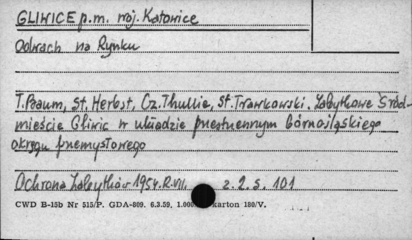 GLIWICE p.m. woj. Katowice
Odwach na Rynku
T. Baum, St. Herbst, Cz. Thullie, St. Trawkowski. Zabytkowe Śród-
mieście Gliwic w układzie przestrzennym Górnośląskiego
okręgu przemysłowego
Ochrona Zabytków 1954.R.VII. z.2.s. 101
CWD B-15b Nr 515/P. GDA-809. 6.3.59. 1.000 karton 180/V.